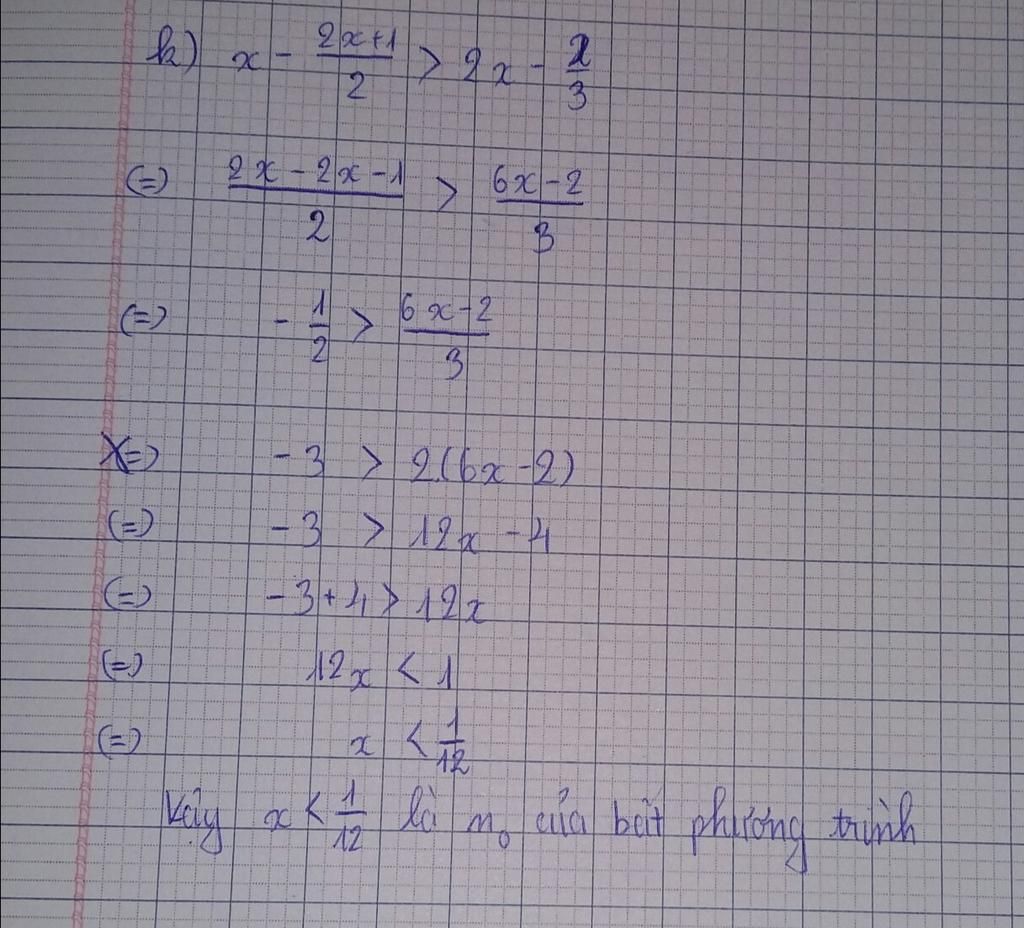 k) x - (2x+1)/2 > 2x - 2/3
(=) (2x - 2x - 1)/2 > (6x - 2)/3
(=) - 1/2 > (6x - 2)/3
(=) - 3 > 2(6x - 2)
(=) - 3 > 12x - 4
(=) - 3 + 4 > 12x
(=) 12x < 1
(=) x < 1/12
Vậy x < 1/12 là no của bất phương trình